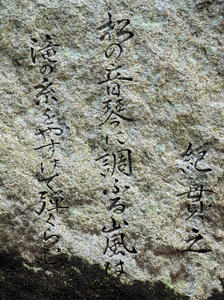 紀貫之
松の音琴に調ふる山風は
滝の糸をやすげて弾くらむ